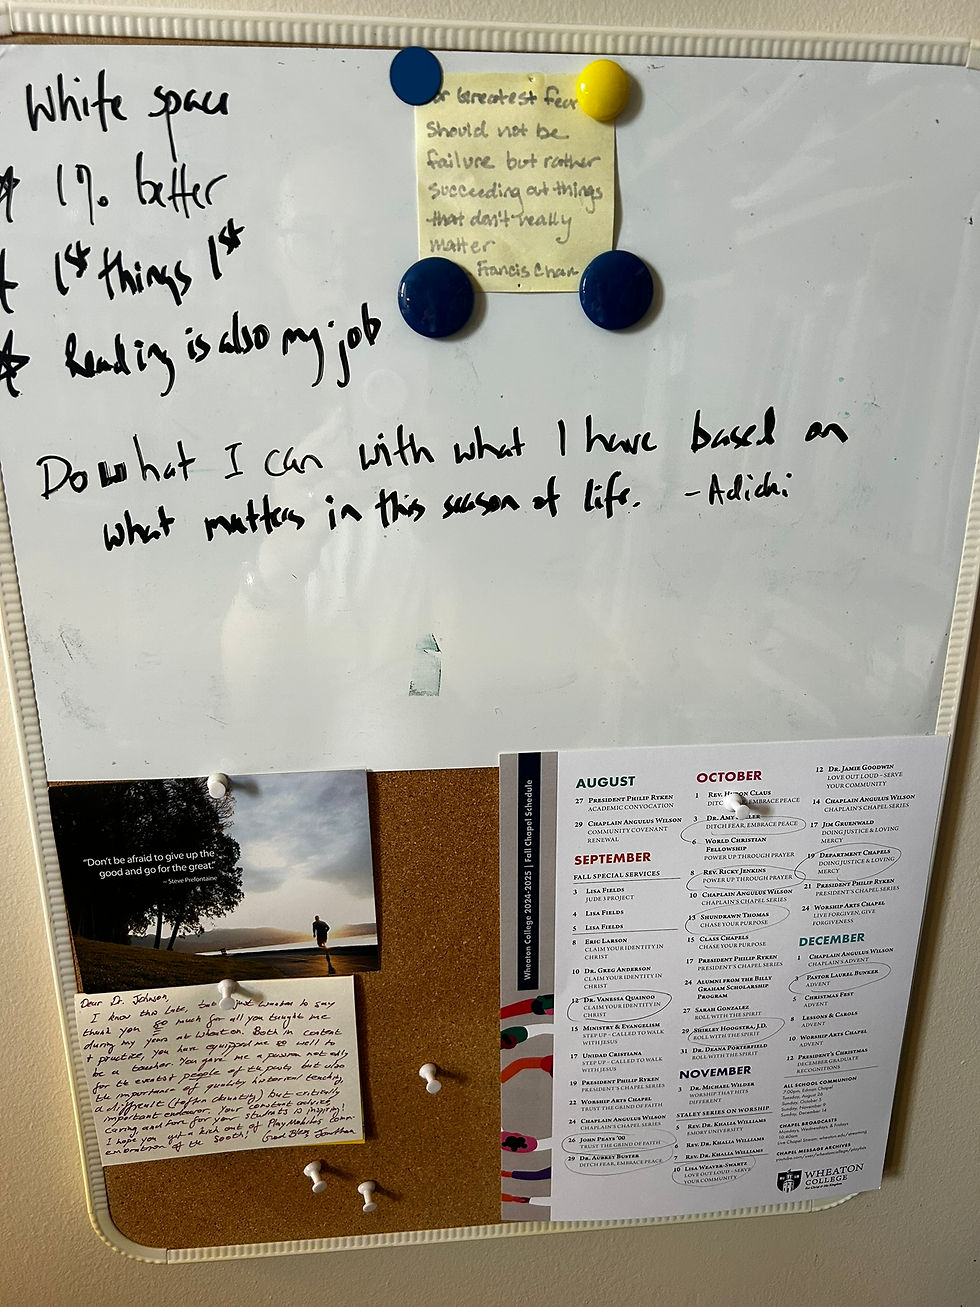 White space
1% better
1st things 1st
Reading is also my job
Greatest fear
Should not be
failure but rather
succeeding at things
that don't really
matter
Francis Chan
Do what I can with what I have based on
what matters in this season of life. - Adichi
"Don't be afraid to give up the
good and go for the great."
~ Steve Prefontaine
Dear Dr. Johnson,
I know this late, but just wanted to say
thank you so much for all you taught me
during my years at Wheaton. Both in content
+ practice, you have equipped me so well to
be a teacher. You gave me a passion not only
for the events + people of the past, but also
the importance of quality historical teaching,
a difficult (+ often daunting) but critically
important endeavor. Your constant advice,
caring and love for your students is inspiring!
I hope you get a kick out of Playmobil's
of the Sooth! God Bless, Jonathan
Wheaton College 2024-2025 | Fall Chapel Schedule
AUGUST
27 PRESIDENT PHILIP RYKEN
ACADEMIC CONVOCATION
29 CHAPLAIN ANGULUS WILSON
COMMUNITY COVENANT
RENEWAL
SEPTEMBER
FALL SPECIAL SERVICES
3 LISA FIELDS
JUDE 3 PROJECT
4 LISA FIELDS
5 LISA FIELDS
8 ERIC LARSON
CLAIM YOUR IDENTITY IN
CHRIST
10 DR. GREG ANDERSON
CLAIM YOUR IDENTITY IN
CHRIST
12 DR. VANESSA QUAINOO
CLAIM YOUR IDENTITY IN
CHRIST
15 MINISTRY & EVANGELISM
STEP UP – CALLED TO WALK
WITH JESUS
17 UNIDAD CRISTIANA
STEP UP – CALLED TO WALK
IN JESUS
19 PRESIDENT PHILIP RYKEN
PRESIDENT'S CHAPEL SERIES
22 WORSHIP ARTS CHAPEL
TRUST THE GRIND OF FAITH
24 CHAPLAIN ANGULUS WILSON
CHAPLAIN'S CHAPEL SERIES
26 JOHN PEAYS '00
TRUST THE GRIND OF FAITH
29 DR. AUBREY BUSTER
DITCH FEAR, EMBRACE PEACE
OCTOBER
1 REV. CLAUS
EMBRACE PEACE
3 DR. AMY
DITCH FEAR, EMBRACE PEACE
6 WORLD CHRISTIAN
FELLOWSHIP
POWER UP THROUGH PRAYER
8 REV. RICKY JENKINS
POWER UP THROUGH PRAYER
10 CHAPLAIN ANGULUS WILSON
CHAPLAIN'S CHAPEL SERIES
13 SHUNDRAWN THOMAS
CHASE YOUR PURPOSE
15 CLASS CHAPELS
CHASE YOUR PURPOSE
17 PRESIDENT PHILIP RYKEN
PRESIDENT'S CHAPEL SERIES
24 ALUMNI FROM THE BILLY
GRAHAM SCHOLARSHIP
PROGRAM
27 SARAH GONZALEZ
ROLL WITH THE SPIRIT
29 SHIRLEY HOOGSTRA, J.D.
ROLL WITH THE SPIRIT
31 DR. DEANA PORTERFIELD
ROLL WITH THE SPIRIT
NOVEMBER
3 DR. MICHAEL WILDER
WORSHIP THAT HITS
DIFFERENT
STALEY SERIES ON WORSHIP
5 REV. DR. KHALIA WILLIAMS
EMORY UNIVERSITY
6 REV. DR. KHALIA WILLIAMS
7 REV. DR. KHALIA WILLIAMS
10 LISA WEAVER-SWARTZ
LOVE OUT LOUD – SERVE
YOUR COMMUNITY
12 DR. JAMIE GOODWIN
LOVE OUT LOUD – SERVE
YOUR COMMUNITY
14 CHAPLAIN ANGULUS WILSON
CHAPLAIN'S CHAPEL SERIES
17 JIM GRUENWALD
DOING JUSTICE & LOVING
MERCY
19 DEPARTMENT CHAPELS
DOING JUSTICE & LOVING
MERCY
21 PRESIDENT PHILIP RYKEN
PRESIDENT'S CHAPEL SERIES
24 WORSHIP ARTS CHAPEL
LIVE FORGIVEN, GIVE
FORGIVENESS
DECEMBER
1 CHAPLAIN ANGULUS WILSON
CHAPLAIN'S ADVENT
3 PASTOR LAUREL BUNKER
ADVENT
5 CHRISTMAS FEST
ADVENT
8 LESSONS & CAROLS
ADVENT
10 WORSHIP ARTS CHAPEL
ADVENT
12 PRESIDENT'S CHRISTMAS
DECEMBER GRADUATE
RECOGNITIONS
ALL SCHOOL COMMUNION
7:00pm, Edman Chapel
Tuesday, August 26
Sunday, October 5
Sunday, November 9
Sunday, December 14
CHAPEL BROADCASTS
Monday's, Wednesdays, & Fridays
10:40am
Live Chapel Stream: wheaton.edu/streaming
CHAPEL MESSAGE ARCHIVES
WHEATON
COLLEGE
For Christ & His Kingdom